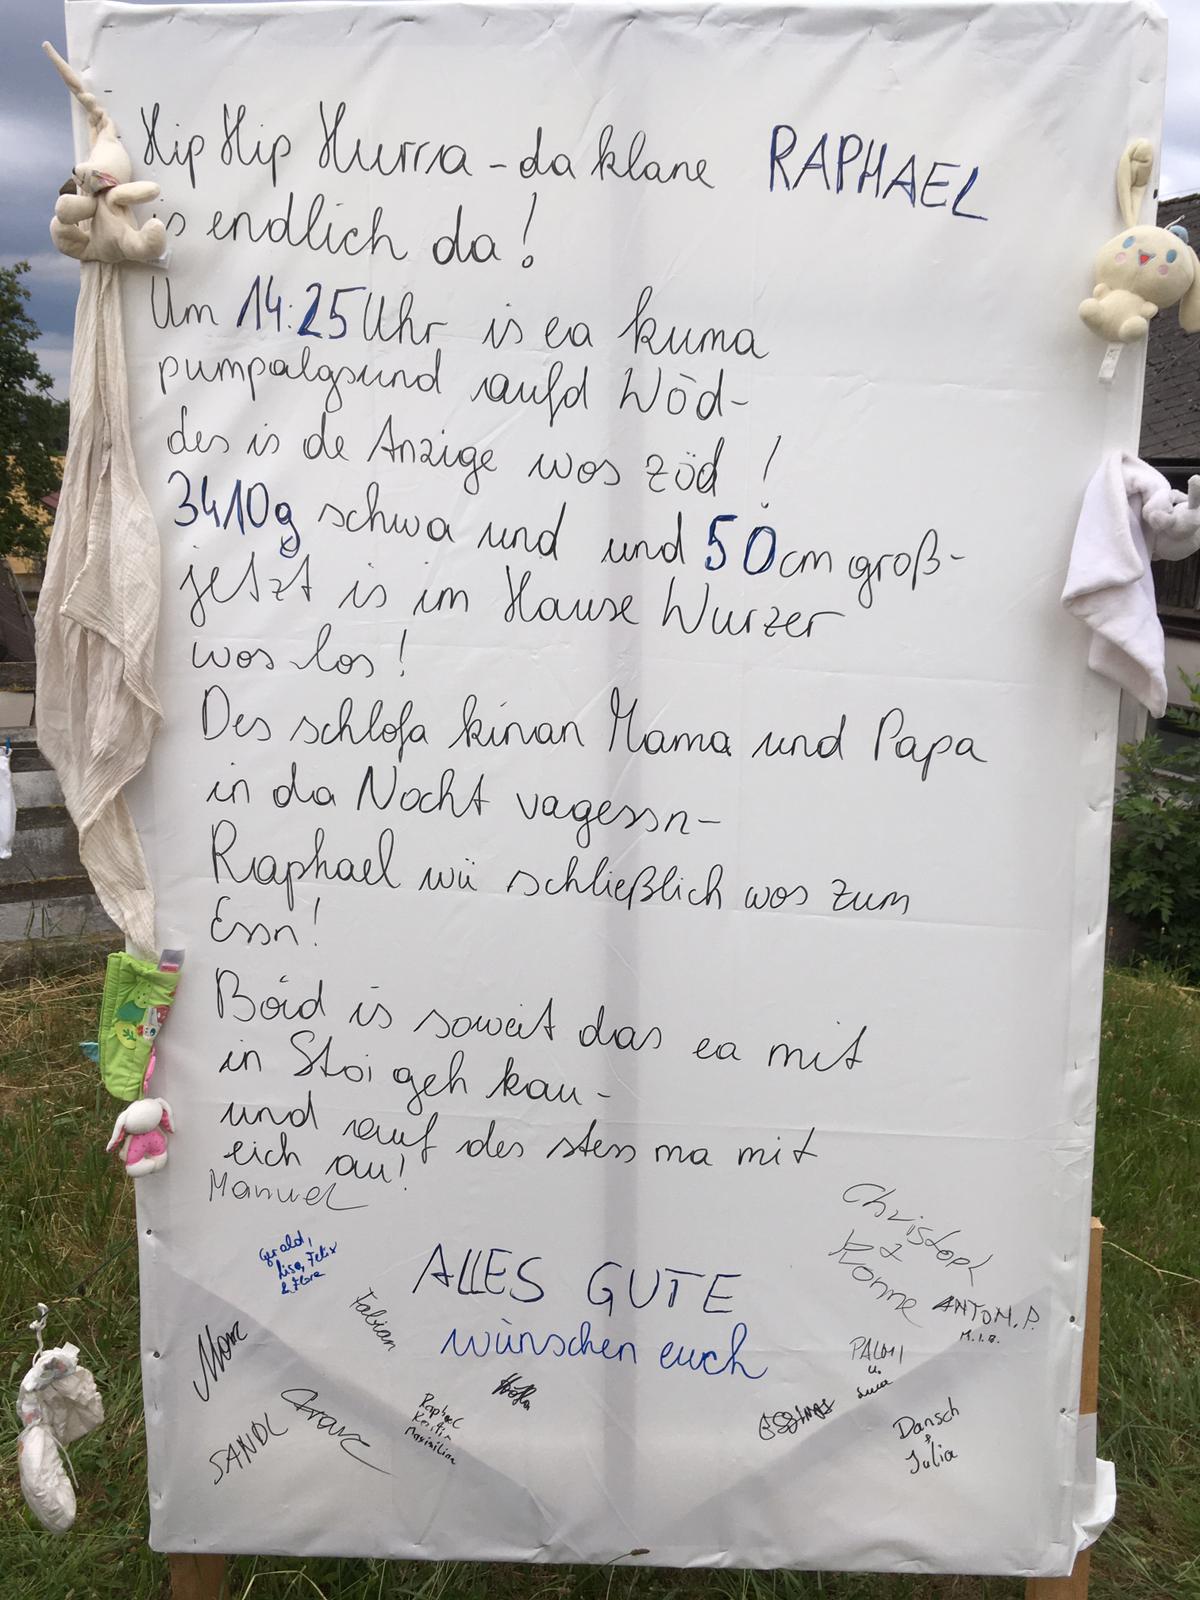 Hip Hip Hurra - da klane RAPHAEL
is endlich da!
Um 14:25 Uhr is ea kuma
pumpalgsund aufd Wöd-
des is de Anzige wos zöd!
3410g schwa und und 50cm groß-
jetzt is im Hause Wurzer
wos los!
Des schlofa kinan Mama und Papa
in da Nocht vagessn-
Raphael wü schließlich wos zum
Essn!
Boid is soweit das ea mit
in Stoi geh kau-
und auf des stess ma mit
eich au!
Manuel
Gerald,
Lisa, Felix
& Flora
Fabian
ALLES GUTE
wünschen euch
Christoph
&
Romne
ANTOM.P.
M.I.B.
SANDL
Raphael
Kerstin
Maximilian
PALMI
u.
Luca
Dansch
+
Julia